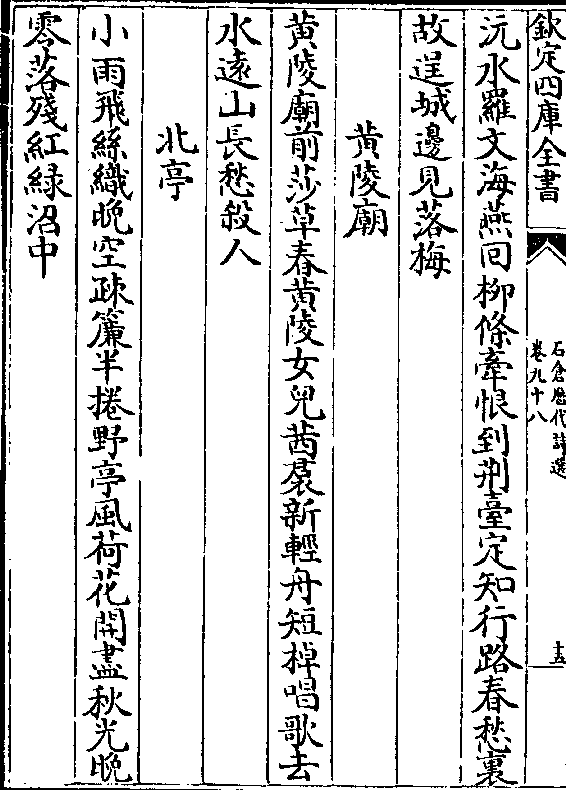 欽定四庫全書
石倉歴代詩選
卷九十八
十五
沅水羅文海燕囘柳條牽恨到荆臺定知行路春愁裏
故逞城邊見落梅
黄陵廟
黄陵廟前莎草春黄陵女兒茜裠新輕舟短棹唱歌去
水遠山長愁殺人
北亭
小雨飛絲織晚空疎簾半捲野亭風荷花開盡秋光晚
零落殘紅緑沼中